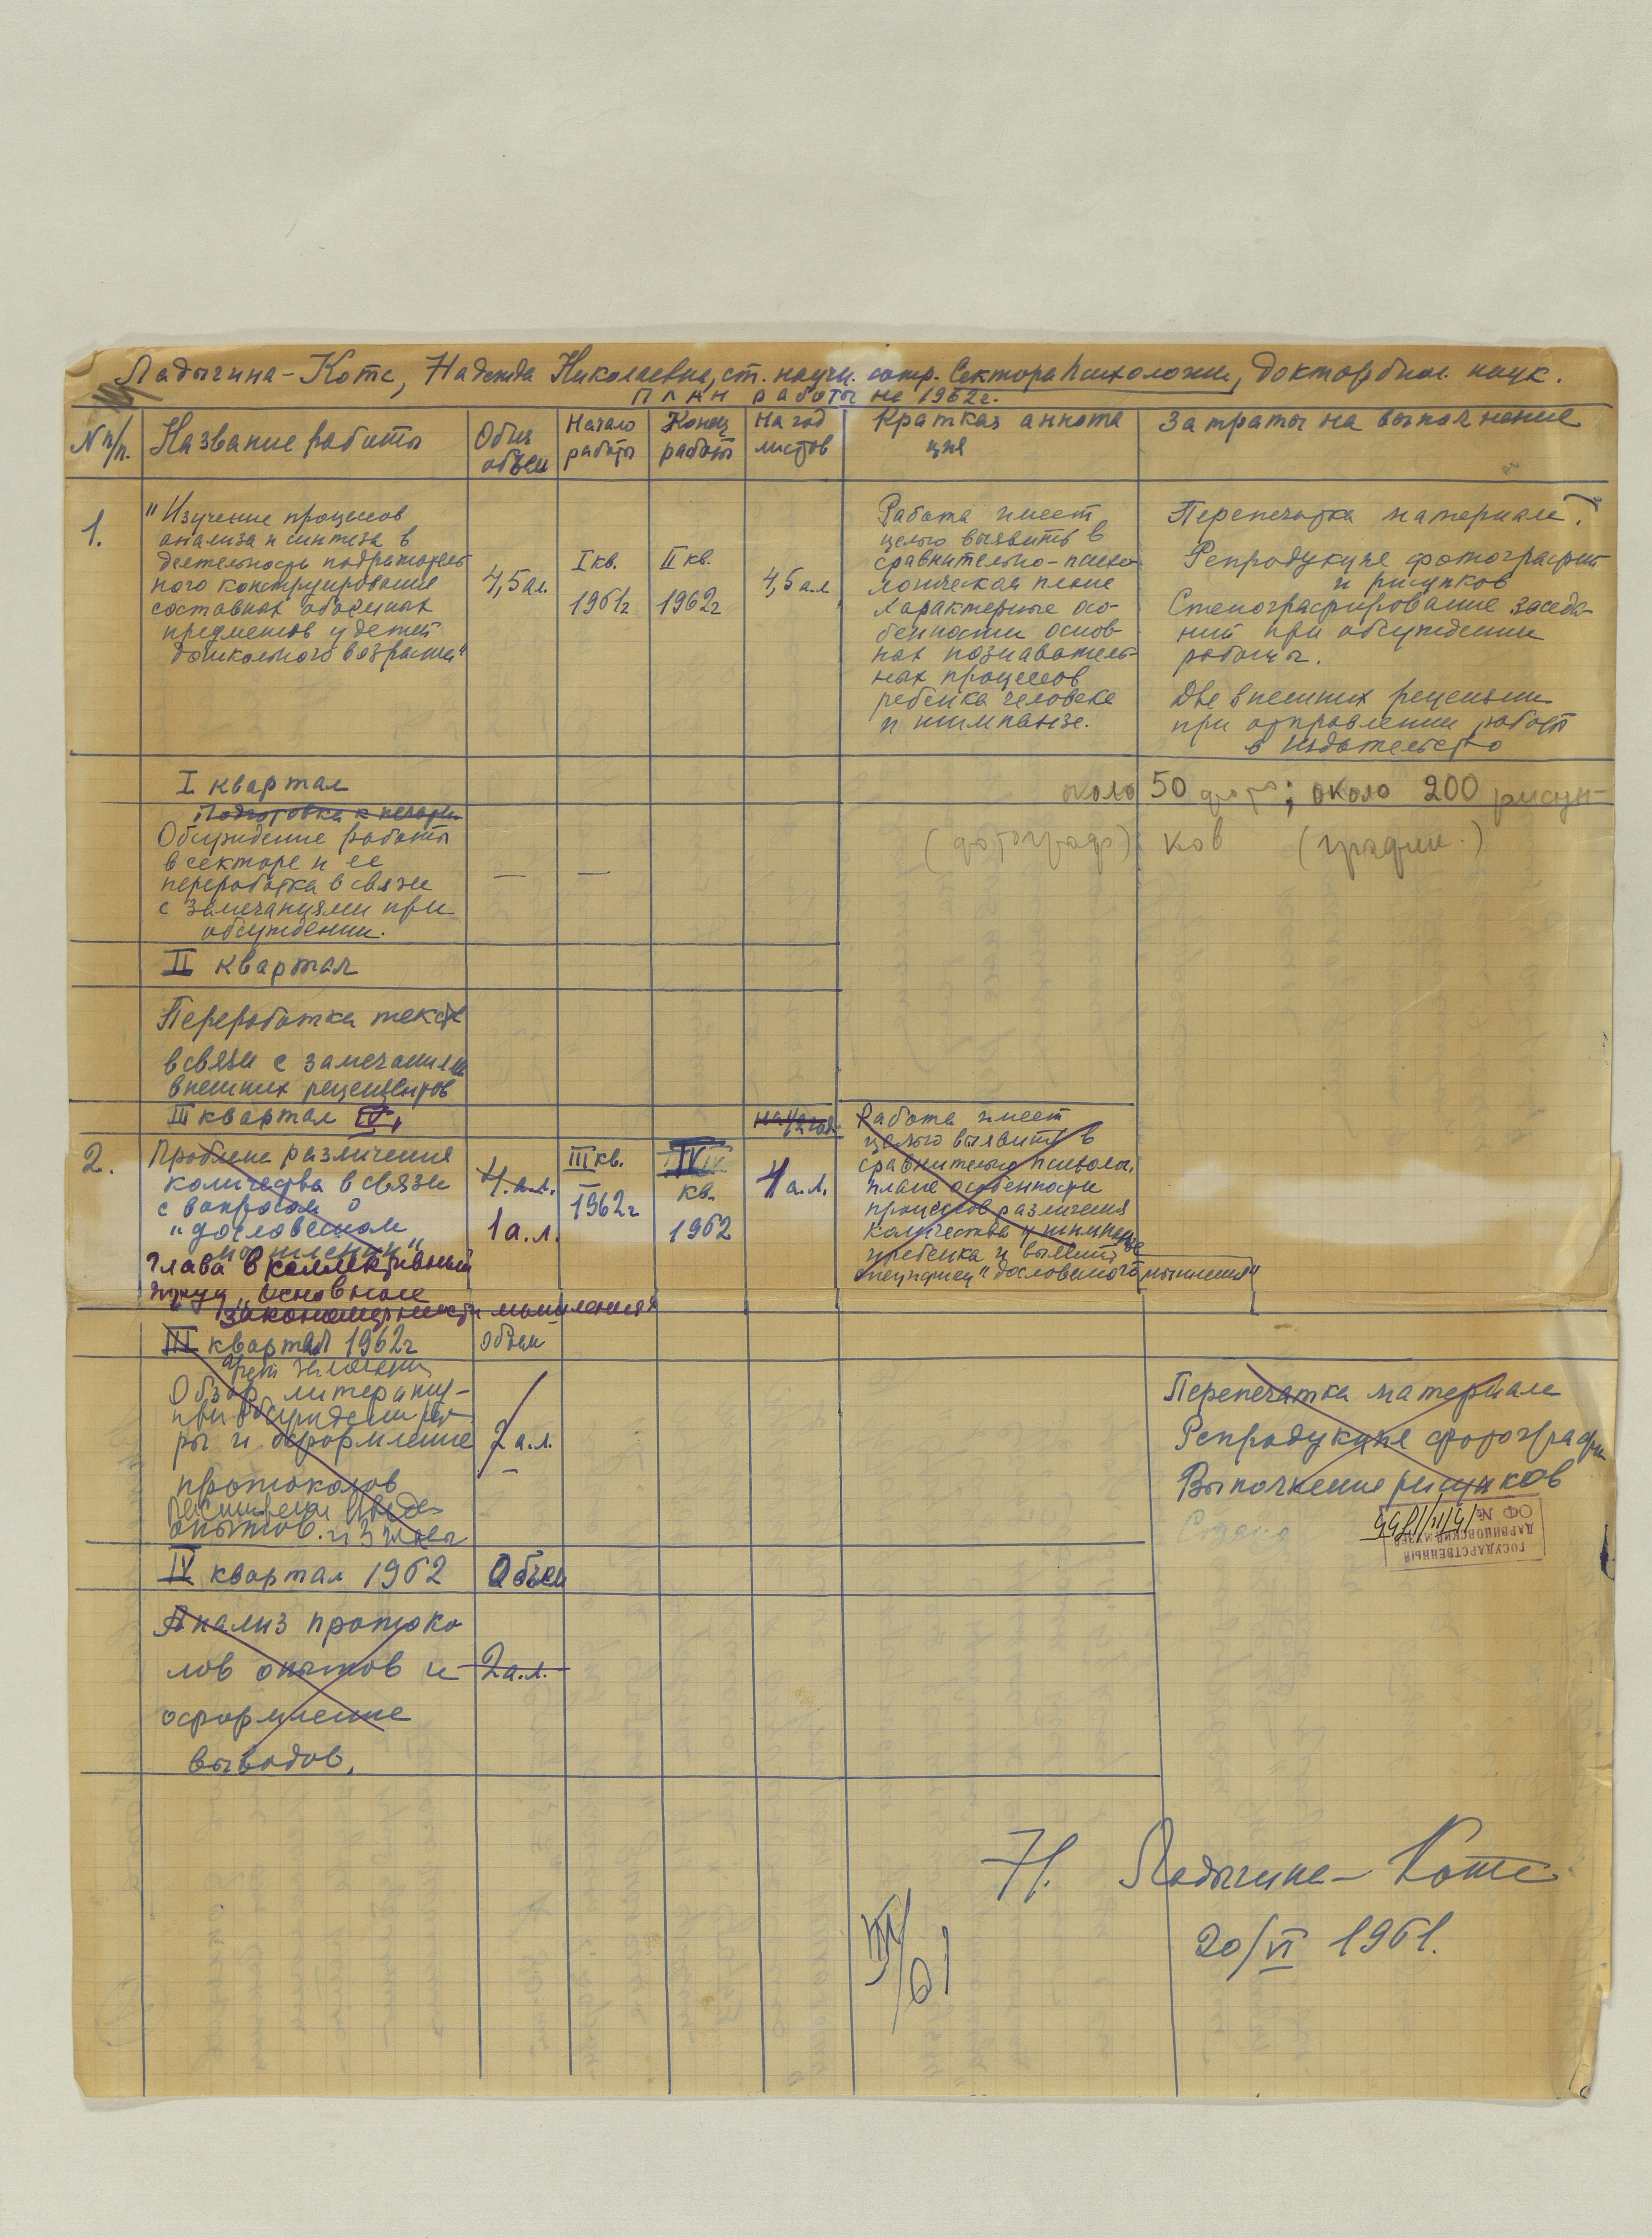 Ладыгина-Котс, Надежда Николаевна, ст. научн. сотр. Сектора психологии, доктор биол. наук.
План работы на 1962 г.
N п/п.
Название работы
Общ объем
Начало работы
Конец работы
На год листов
Краткая аннота
ция
Затраты на выполнение
1.
"Изучение процессов
анализа и синтеза в
деятельности подражатель
ного конструирования
составных объемных
предметов у детей
дошкольного возраста"
4,5 а.л.
I кв.
1961г
II кв.
1962г
4,5 а.л
Работа имеет
целью выявить в
сравнительно-психо
логическая плане
характерные осо-
бенности основ-
ных познаватель-
ных процессов
ребенка человека
и шимпанзе.
Перепечатка материала.
Репродукция фотографий
и рисунков
Стенографирование заседа-
ний при обсуждении
работы.
Две внешних рецензии
при отправлении работ
в издательство
I квартал
около 50 фото; около 200 рисун-
(фотограф) ков (график.)
Подготовка к печати
Обсуждение работы
в секторе и ее
переработка в связи
с замечаниями при
обсуждении.
— —
II квартал
Переработка текста
в связи с замечаниями
внешних рецензентов
III квартал IV,
на 1/2 года
2.
Проблема различения
количества в связи
с вопросом о
"дословесном
мышлении"
Глава в коллективный
труд "Основные
закономерности мышления"
4 а.л.
1 а.л.
III кв.
1962г
IV
кв.
1962
1 а.л.
Работа имеет
целью выявить в
сравнительно психолог.
плане особенности
процессов различения
количества у шимпанзе
и ребенка и выявить
специфику "дословесного мышления"
III квартал 1962г
Объем
Обзор литерату-
при обсуждении
ры и оформление
протоколов
опытов.
2 а.л.
Перепечатка материала
Репродукция фотографи
Выполнение рисунков
ГОСУДАРСТВЕННЫЙ
ДАРВИНОВСКИЙ МУЗЕЙ
ОФ №
IV квартал 1962
Объем
Анализ протоко
лов опытов и
оформление
выводов.
2 а.л.
Н. Ладыгина-Котс
20/VI 1961.